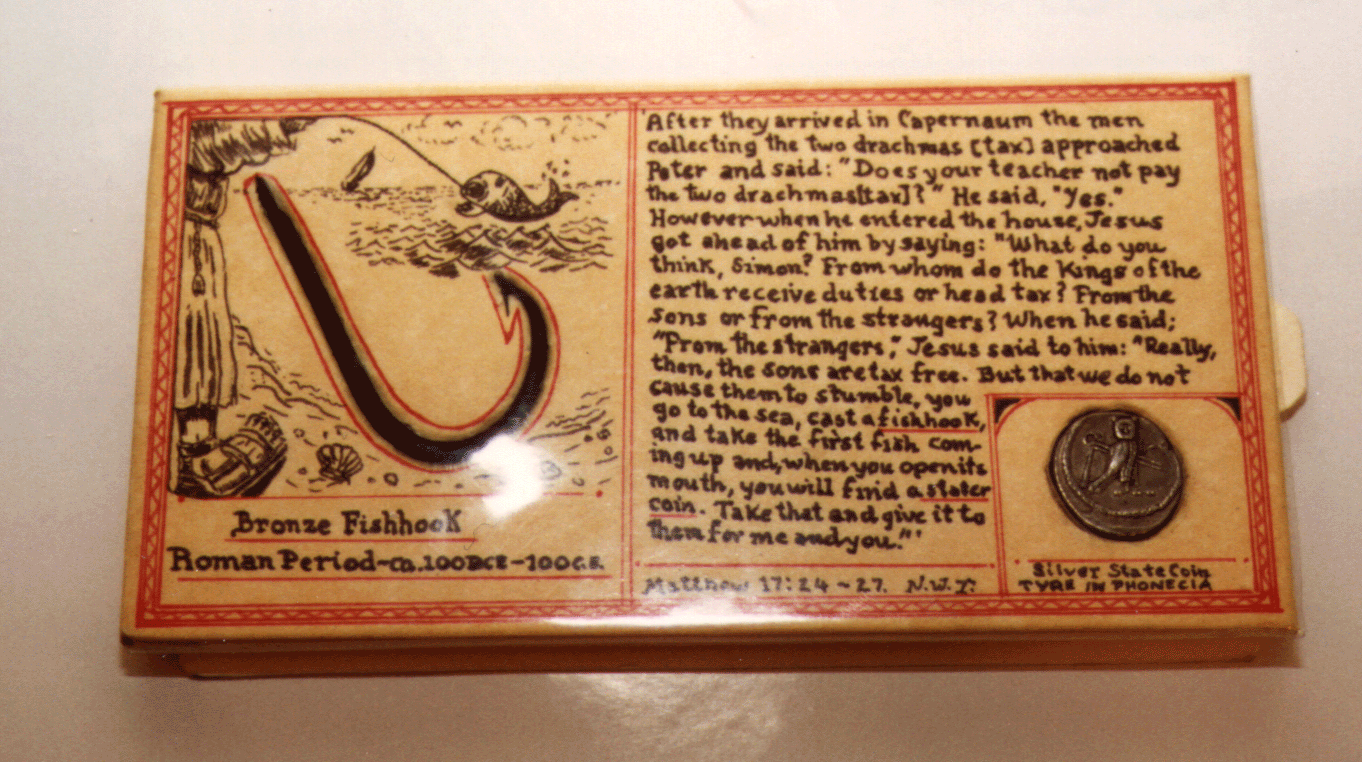 Bronze Fishhook
Roman Period-ca.100BCE-100C.E.
'After they arrived in Capernaum the men
collecting the two drachmas [tax] approached
Peter and said: "Does your teacher not pay
the two drachmas[tax]?" He said, "Yes."
However when he entered the house, Jesus
got ahead of him by saying: "What do you
think, Simon? From whom do the Kings of the
earth receive duties or head tax? From the
sons or from the strangers? When he said;
"From the strangers," Jesus said to him: "Really,
then, the sons are tax free. But that we do not
cause them to stumble, you
go to the sea, cast a fishhook,
and take the first fish com-
ing up and, when you open its
mouth, you will find a stater
coin. Take that and give it to
them for me and you."'
Matthew 17:24-27. N.W.T.
Silver State Coin
TYRE IN PHONECIA